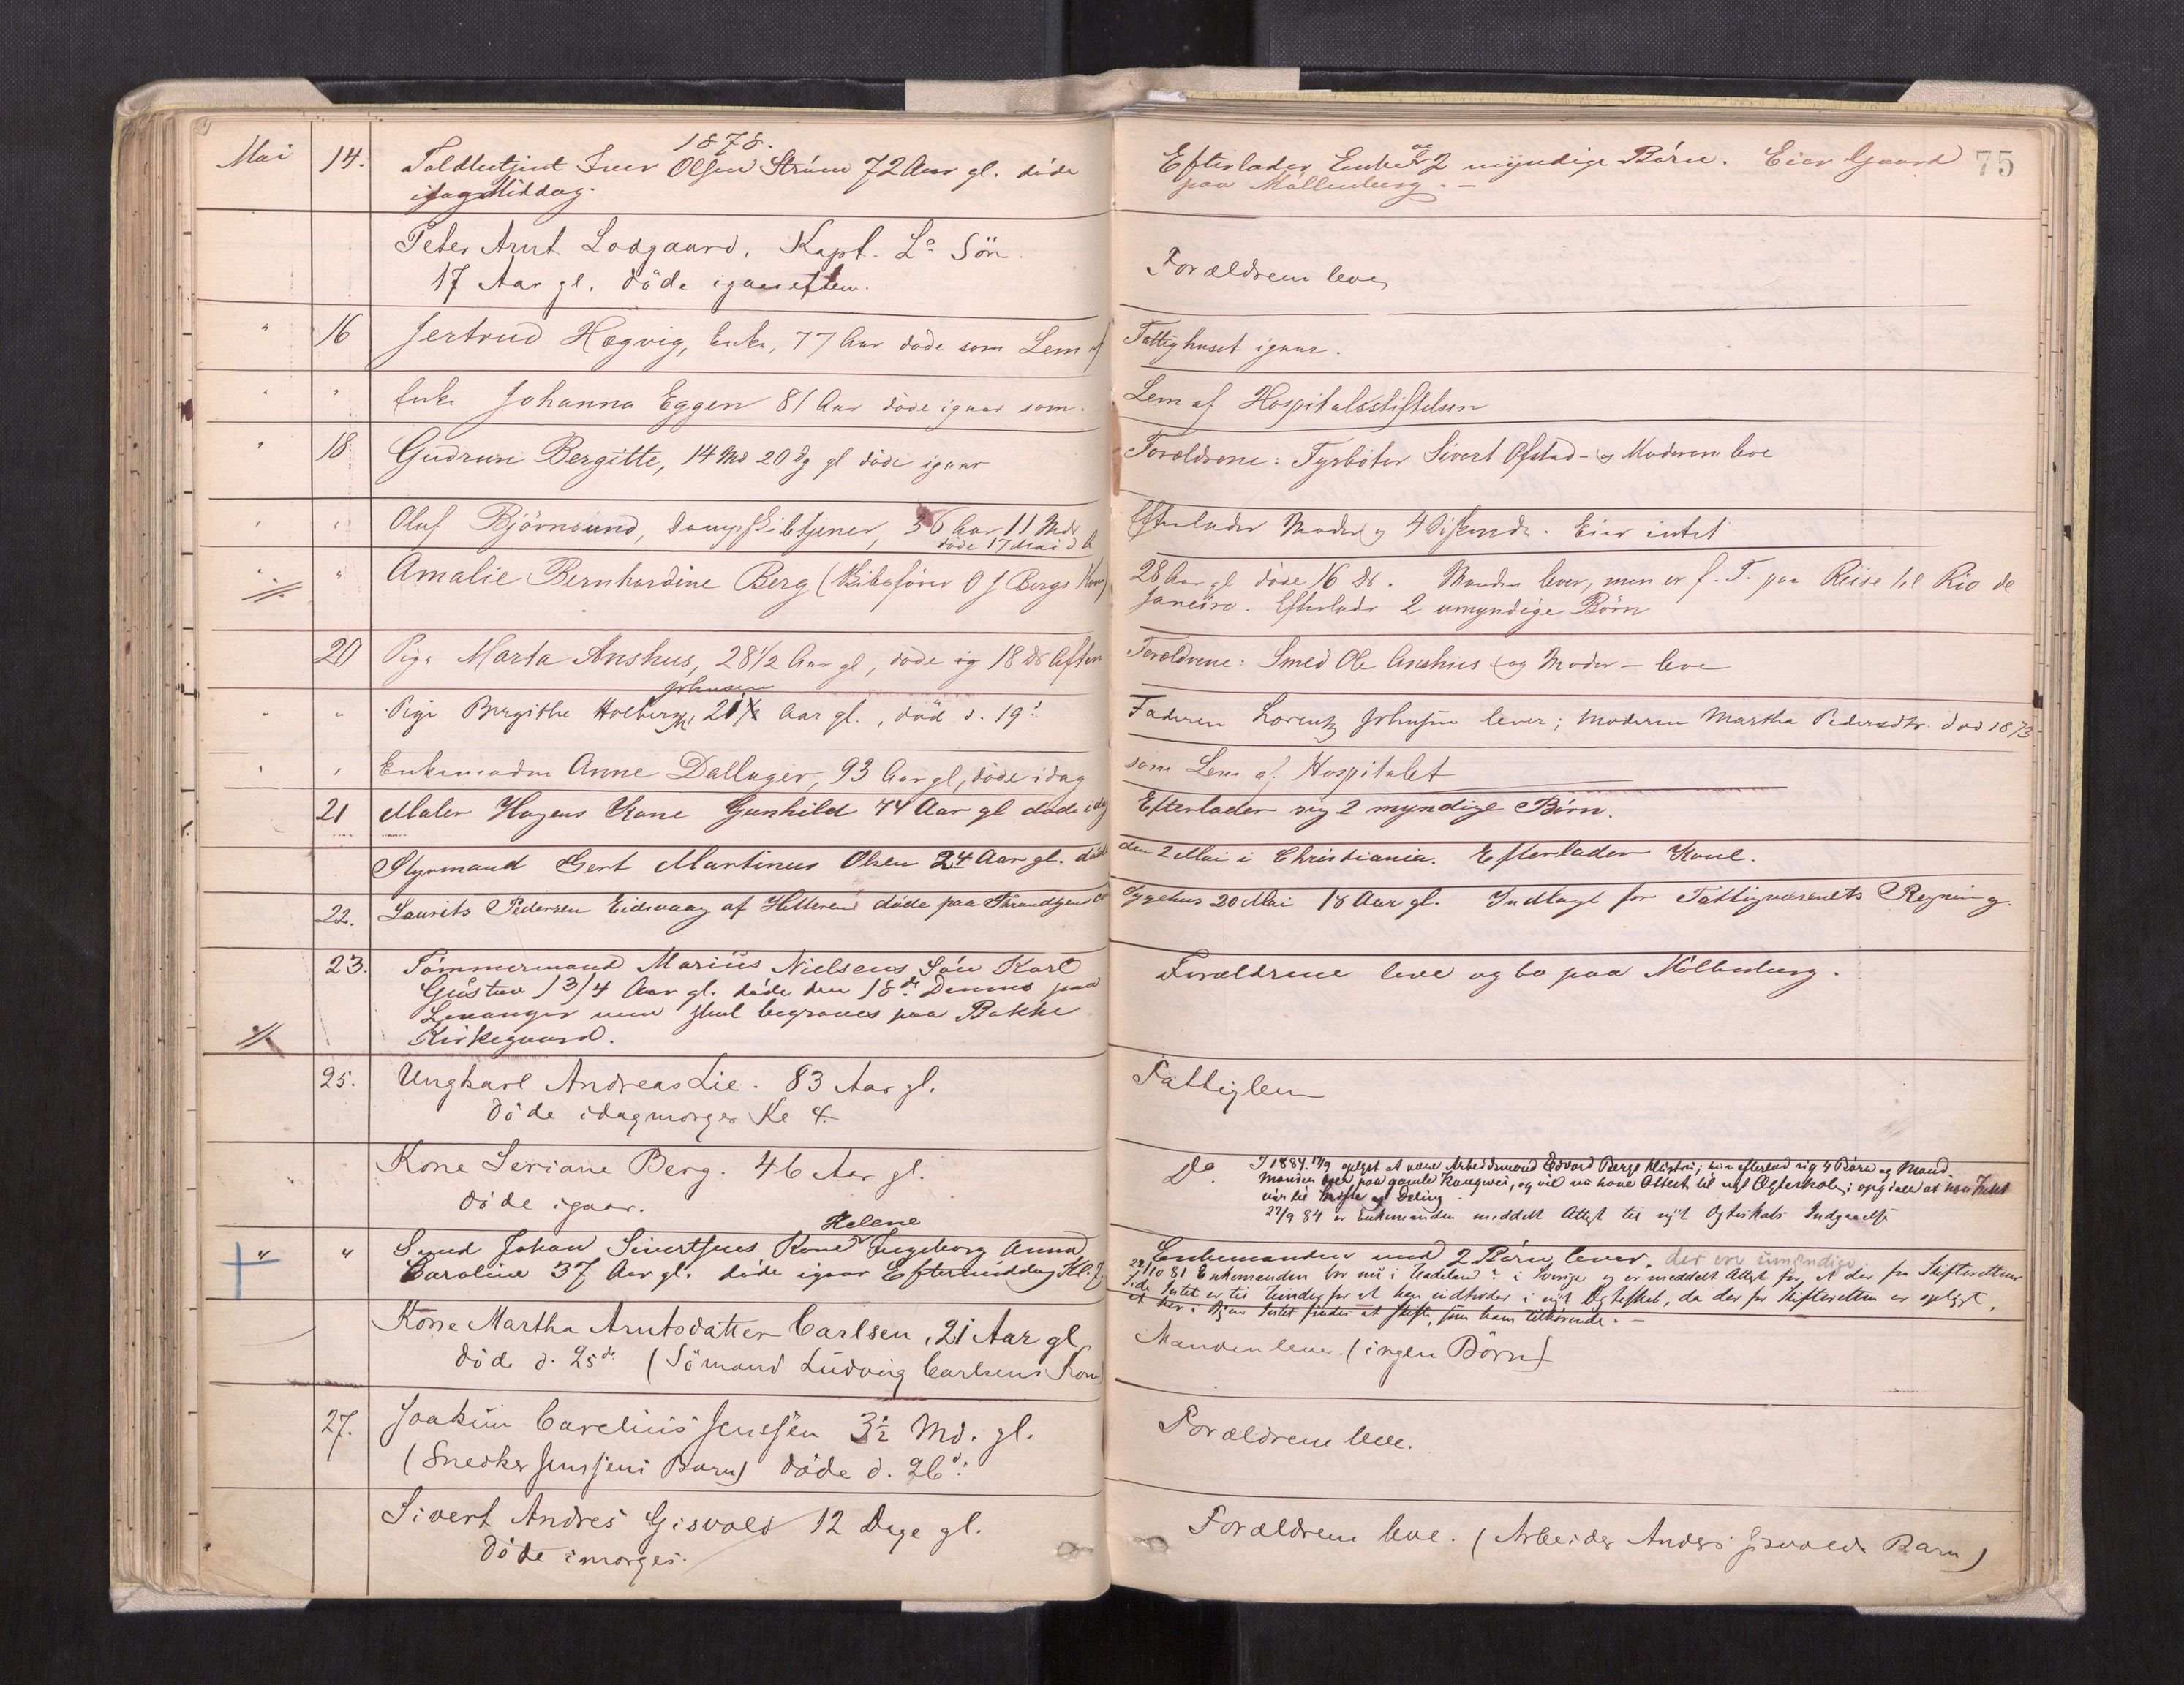 1878.
75
Mai 14. Toldbetjent Iver Olsen Ström 72 Aar gl. døde
idag Middag.
Efterlader Enke og 2 myndige Börn. Eier Gaard
paa Möllenberg. -
Peter Arnt Lodgaard. Kapt. Ls Sön.
17 Aar gl. döde igaaraften.
Forældrene leve
" 16 Jertrud Hegvig, Enke, 77 Aar døde som Lem af
Fattighuset igaar.
" " Enke Johanna Eggen 81 Aar døde igaar som
Lem af Hospitalsstiftelsen
" 18 Gudrun Bergitte, 14 Md 20 Dg gl døde igaar
Forældrene: Fyrbøter Sivert Ofstad - og Moderen leve
" " Oluf Björnsund, Dampskibstjener, 36 Aar 11 Mdr
døde 17 Mai d A
Efterlader Moder og 4 Søskende. Eier intet
" " Amalie Bernhardine Berg (Skibsfører O J Bergs Kone)
28 Aar gl døde 16 ds. Manden lever, men er f. T. paa Reise til Rio de
Janeiro. Efterlader 2 umyndige Börn
20 Pige Marta Anshus, 28 1/2 Aar gl, døde 18 ds Aften
Forældrene: Smed Ole Anshus og Moder - leve
Johnsen
" " Pige Bergithe Holberg, 21 1/2 Aar gl., död d. 19de
Faderen Lorentz Johnsen lever; Moderen Martha Pedersdtr. död 1873
" " Enkemadm Anne Dallager, 93 Aar gl, døde idag
som Lem af Hospitalet
21 Maler Hagens Kone Gunhild 74 Aar gl døde idag
Efterlader sig 2 myndige Börn.
Styrmand Gert Martinus Olsen 24 Aar gl. døde
den 2 Mai i Christiania. Efterlader Kone.
22. Laurits Pedersen Eidsvaag af Hitteren døde paa Trondhjems
Sygehus 20 Mai 18 Aar gl. Indlagt for Fattigvæsenets Regning.
23. Tömmermand Marius Nielsens Sön Karl
Gustav 1 3/4 Aar gl. döde den 18de Dennes paa
Levanger men skal begraves paa Bakke
Kirkegaard.
Forældrene leve og bo paa Möllenberg.
25. Ungkarl Andreas Lie. 83 Aar gl.
Döde idagmorges Kl 4.
Fattiglem
Kone Seriane Berg. 46 Aar gl.
döde igaar.
Do. I 1884 17/9 oplyst at være Arbeidsmand Edvard Bergs Hustru; hun efterlod sig 4 Börn og Mand.
Manden boer paa gamle Kongevei, og vil nu have Attest til nyt Ægteskab; opgiver at han Intet
eier til Skifte og Deling.
27/9 84 er Enkemanden meddelt Attest til nyt Ægteskabs Indgaaelse
Helene
" " Smed Johan Sivertsens Kone Ingeborg Anna
Caroline 37 Aar gl. döde igaar Eftermiddag Kl.
Enkemanden med 2 Börn lever. der ere umyndige
22/10 81 Enkemanden bor nu i i Sverige og er meddelt Attest for, at der fra Skifterettens
Side Intet er til Hinder for at han indtræder i nyt Ægteskab, da der for Skifteretten er oplyst,
at her i Byen Intet findes at skifte, som ham tilhørende. -
Kone Martha Arntsdatter Carlsen, 21 Aar gl
döde d. 25de (Sömand Ludvig Carlsens Kone)
Manden lever. (ingen Börn)
27. Joakim Carelius Jenssen 3 1/2 Md. gl.
(Snedker Jenssens Barn) döde d. 26d.
Forældrene leve.
Sivert Andres Gisvold 12 Dage gl.
döde imorges.
Forældrene leve. (Arbeider Anders Gisvolds Barn)